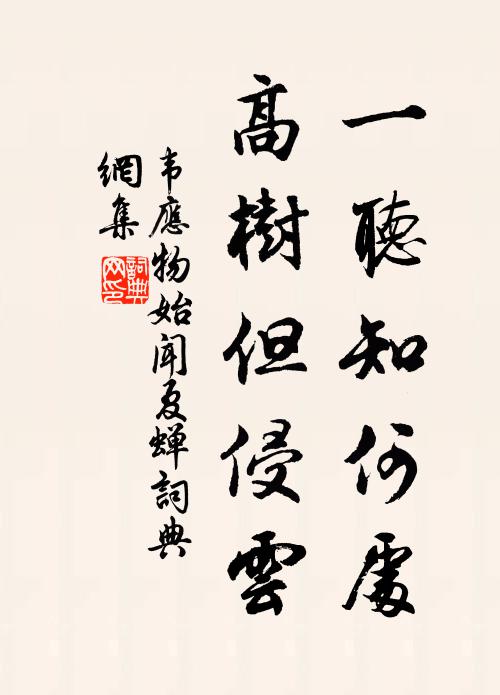 一聽知何處
高樹但侵雲
韦應物始聞夏蝉詞典
網集
詞典
网印